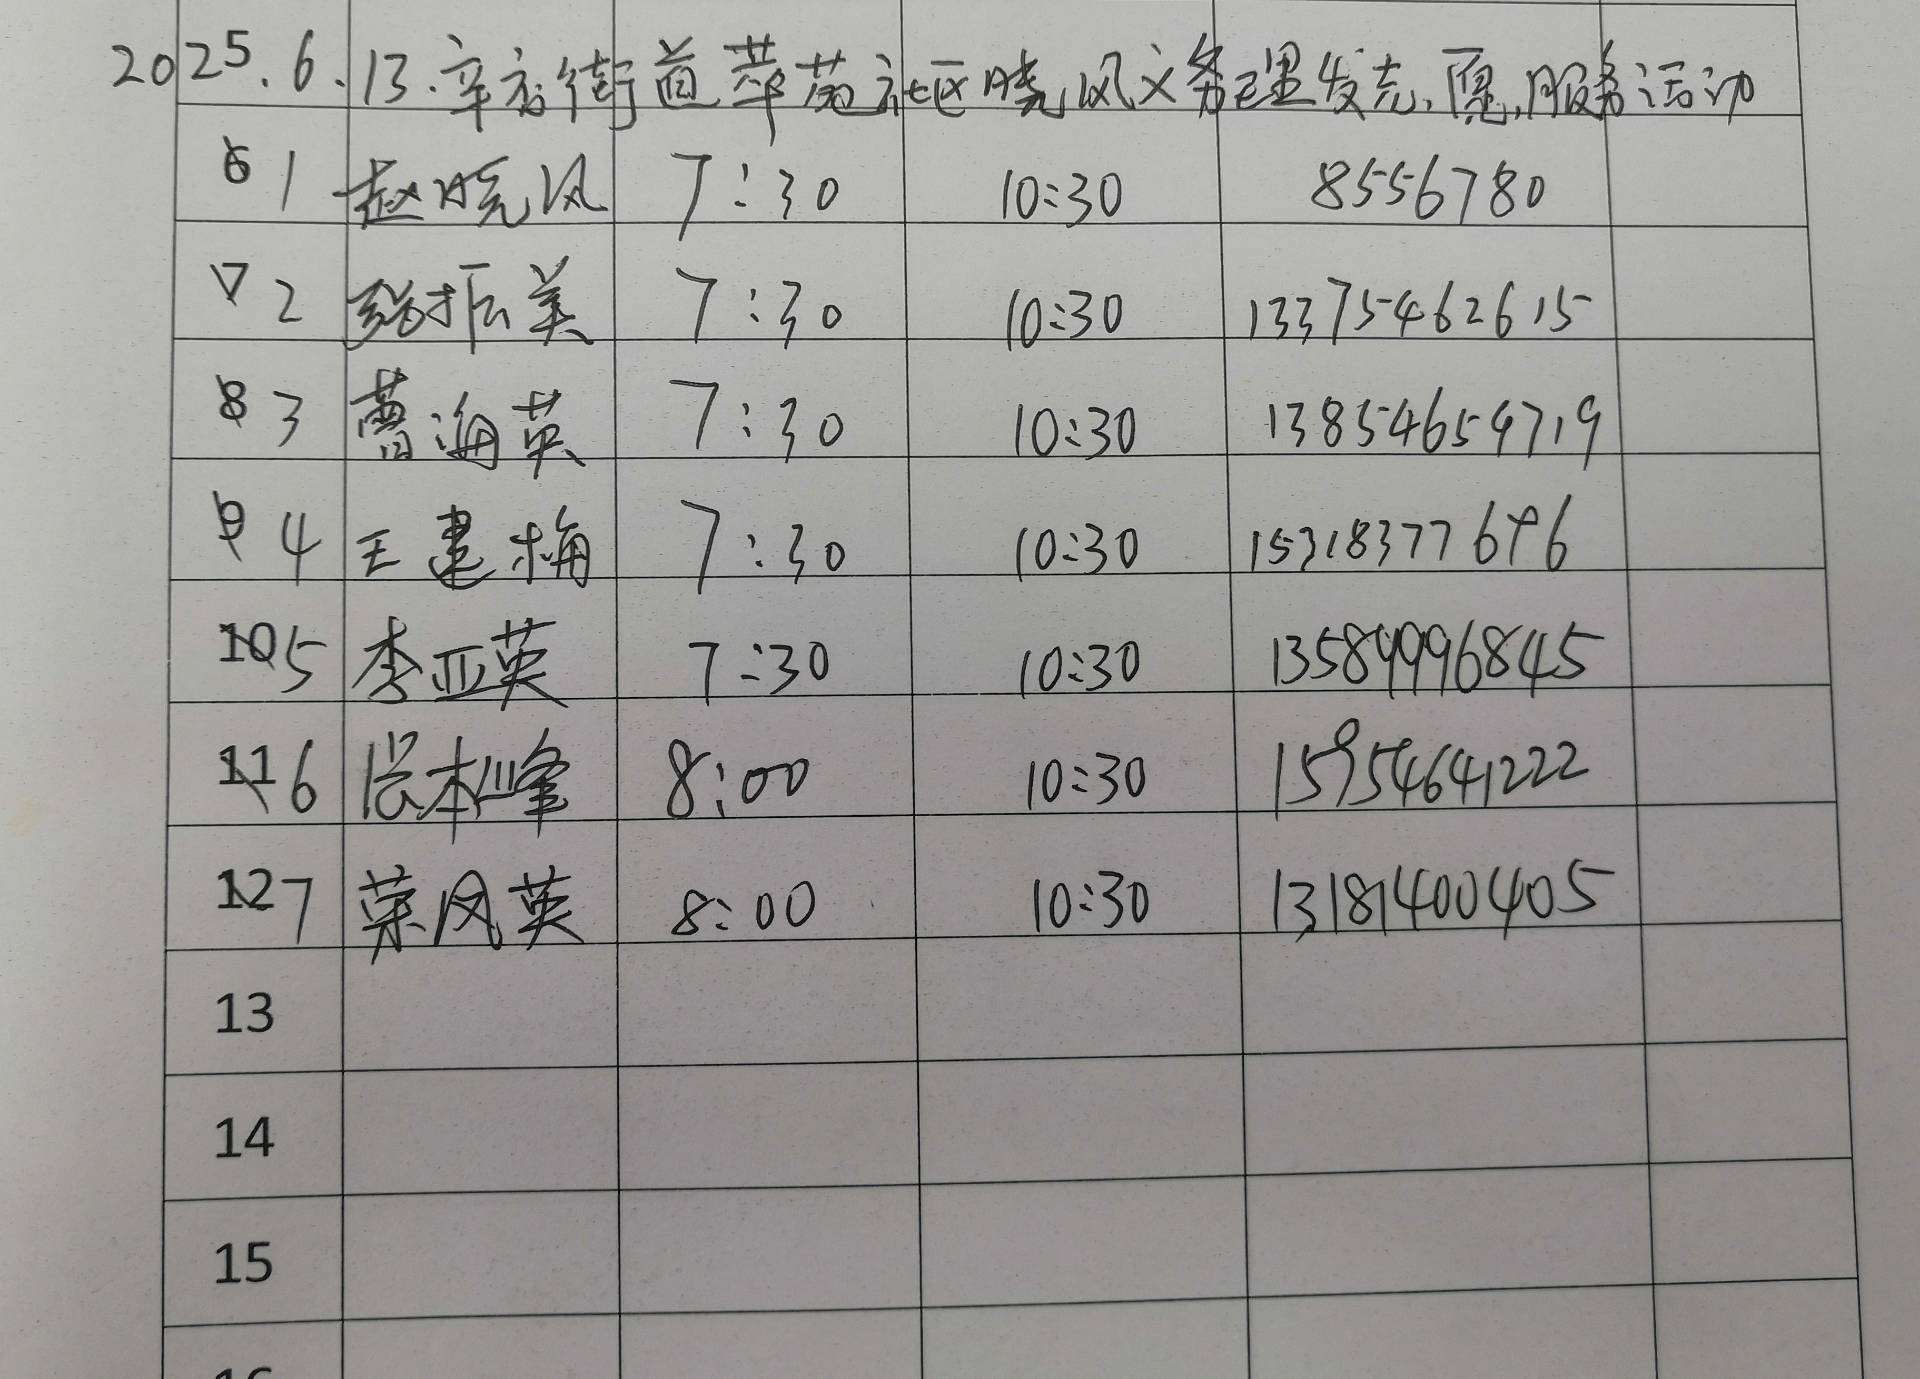 2025.6.13.辛店街道萃苑社区晓风义务理发志愿服务活动
6 1 赵晓风 7:30 10:30 8556780
7 2 张振美 7:30 10:30 13375462615
8 3 曹海英 7:30 10:30 13854659719
9 4 王建梅 7:30 10:30
10 5 李亚英 7:30 10:30 13589996845
11 6 张本峰 8:00 10:30 15954641222
12 7 荣风英 8:00 10:30 13181400405
13
14
15